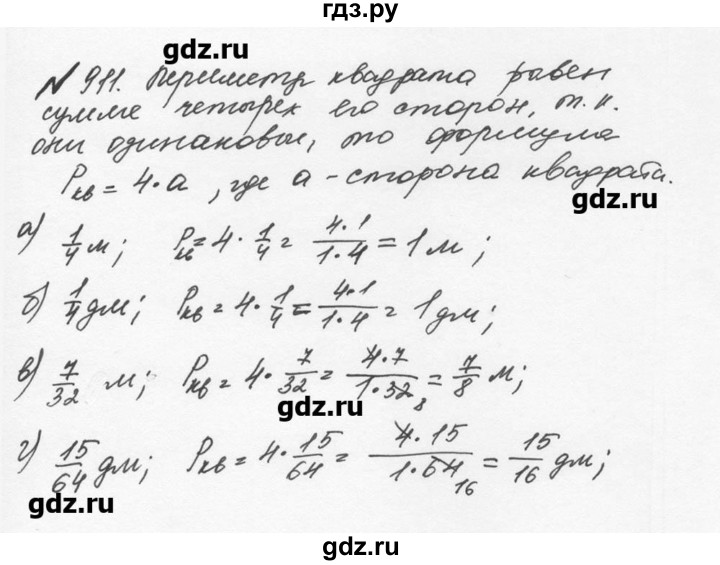 гдз.ру
gdz.ru
№ 911. Периметр квадрата равен
сумме четырех его сторон, т.к.
они одинаковые, то формула
Pкв = 4·a, где a - сторона квадрата.
gdz.ru
а) 1/4 м; Pкв = 4 · 1/4 = 4·1/1·4 = 1 м;
б) 1/4 дм; Pкв = 4 · 1/4 = 4·1/1·4 = 1 дм;
в) 7/32 м; Pкв = 4 · 7/32 = 4·7/1·32 8 = 7/8 м;
gdz.ru
г) 15/64 дм; Pкв = 4 · 15/64 = 4·15/1·64 16 = 15/16 дм;
gdz.ru
gdz.ru